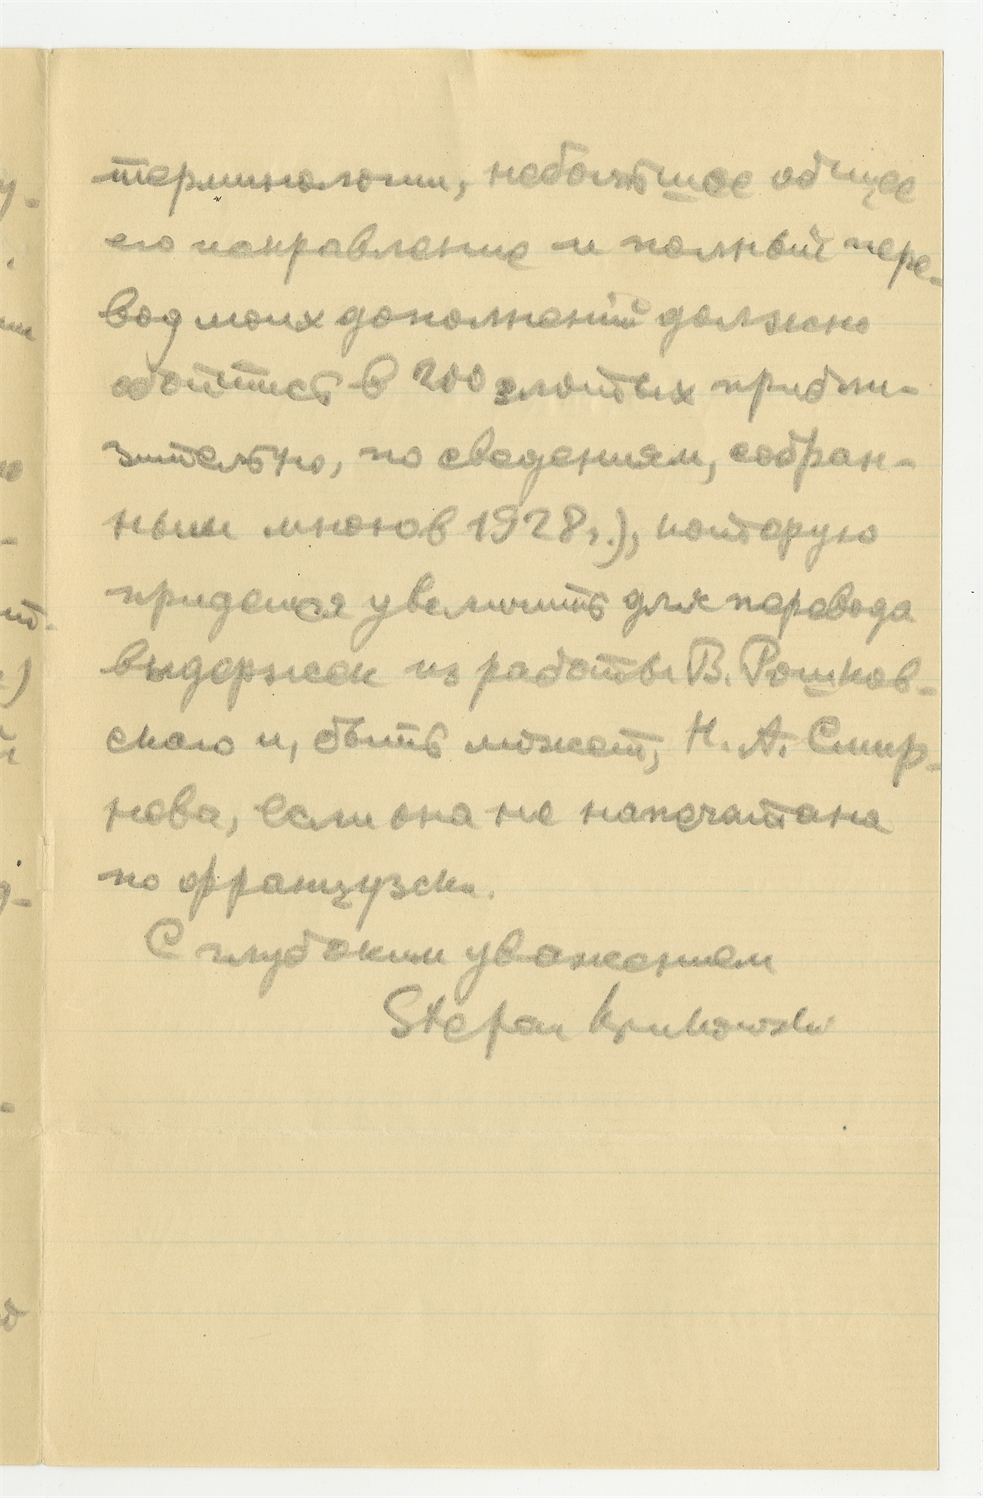 терминологии, небольшое общее
его направление и полный пере-
вод моих дополнений должно
обойтись в 200 злотых прибли-
зительно, по сведениям, собран-
ным мною в 1928 г.), которую
придется увеличить для перевода
выдержек из работы В. Рошков-
скаго и, быть может, Н. А. Смир-
нова, если она не напечатана
по французски.
С глубоким уважением
Stefan Krukowski